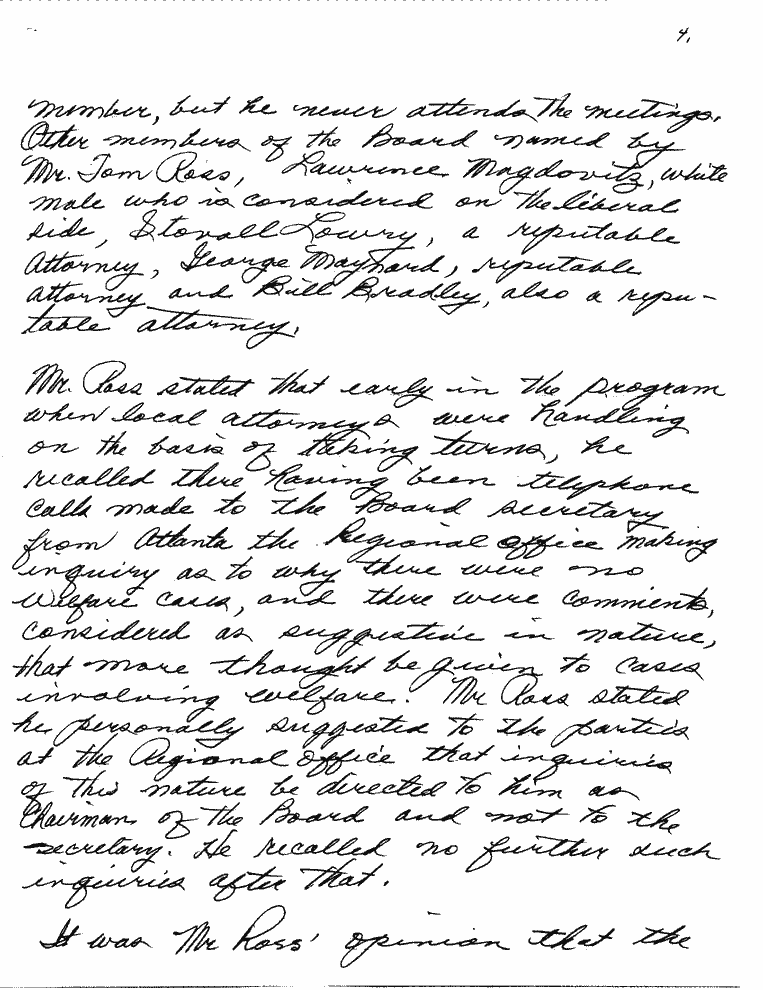 4.
member, but he never attends the meetings.
Other members of the Board named by
Mr. Tom Ross, Lawrence Magdovitz, white
male who is considered on the liberal
side, Stovall Lowry, a reputable
attorney, George Maynard, reputable
attorney and Bill Bradley, also a repu-
table attorney.
Mr. Ross stated that early in the program
when local attorneys were handling
on the basis of taking turns, he
recalled there having been telephone
calls made to the Board secretary
from Atlanta the Regional office making
inquiry as to why there were no
welfare cases, and there were comments,
considered as suggestive in nature,
that more thought be given to cases
involving welfare. Mr Ross stated
he personally suggested to the parties
at the Regional office that inquiries
of this nature be directed to him as
Chairman of the Board and not to the
secretary. He recalled no further such
inquiries after that.
It was Mr Ross' opinion that the